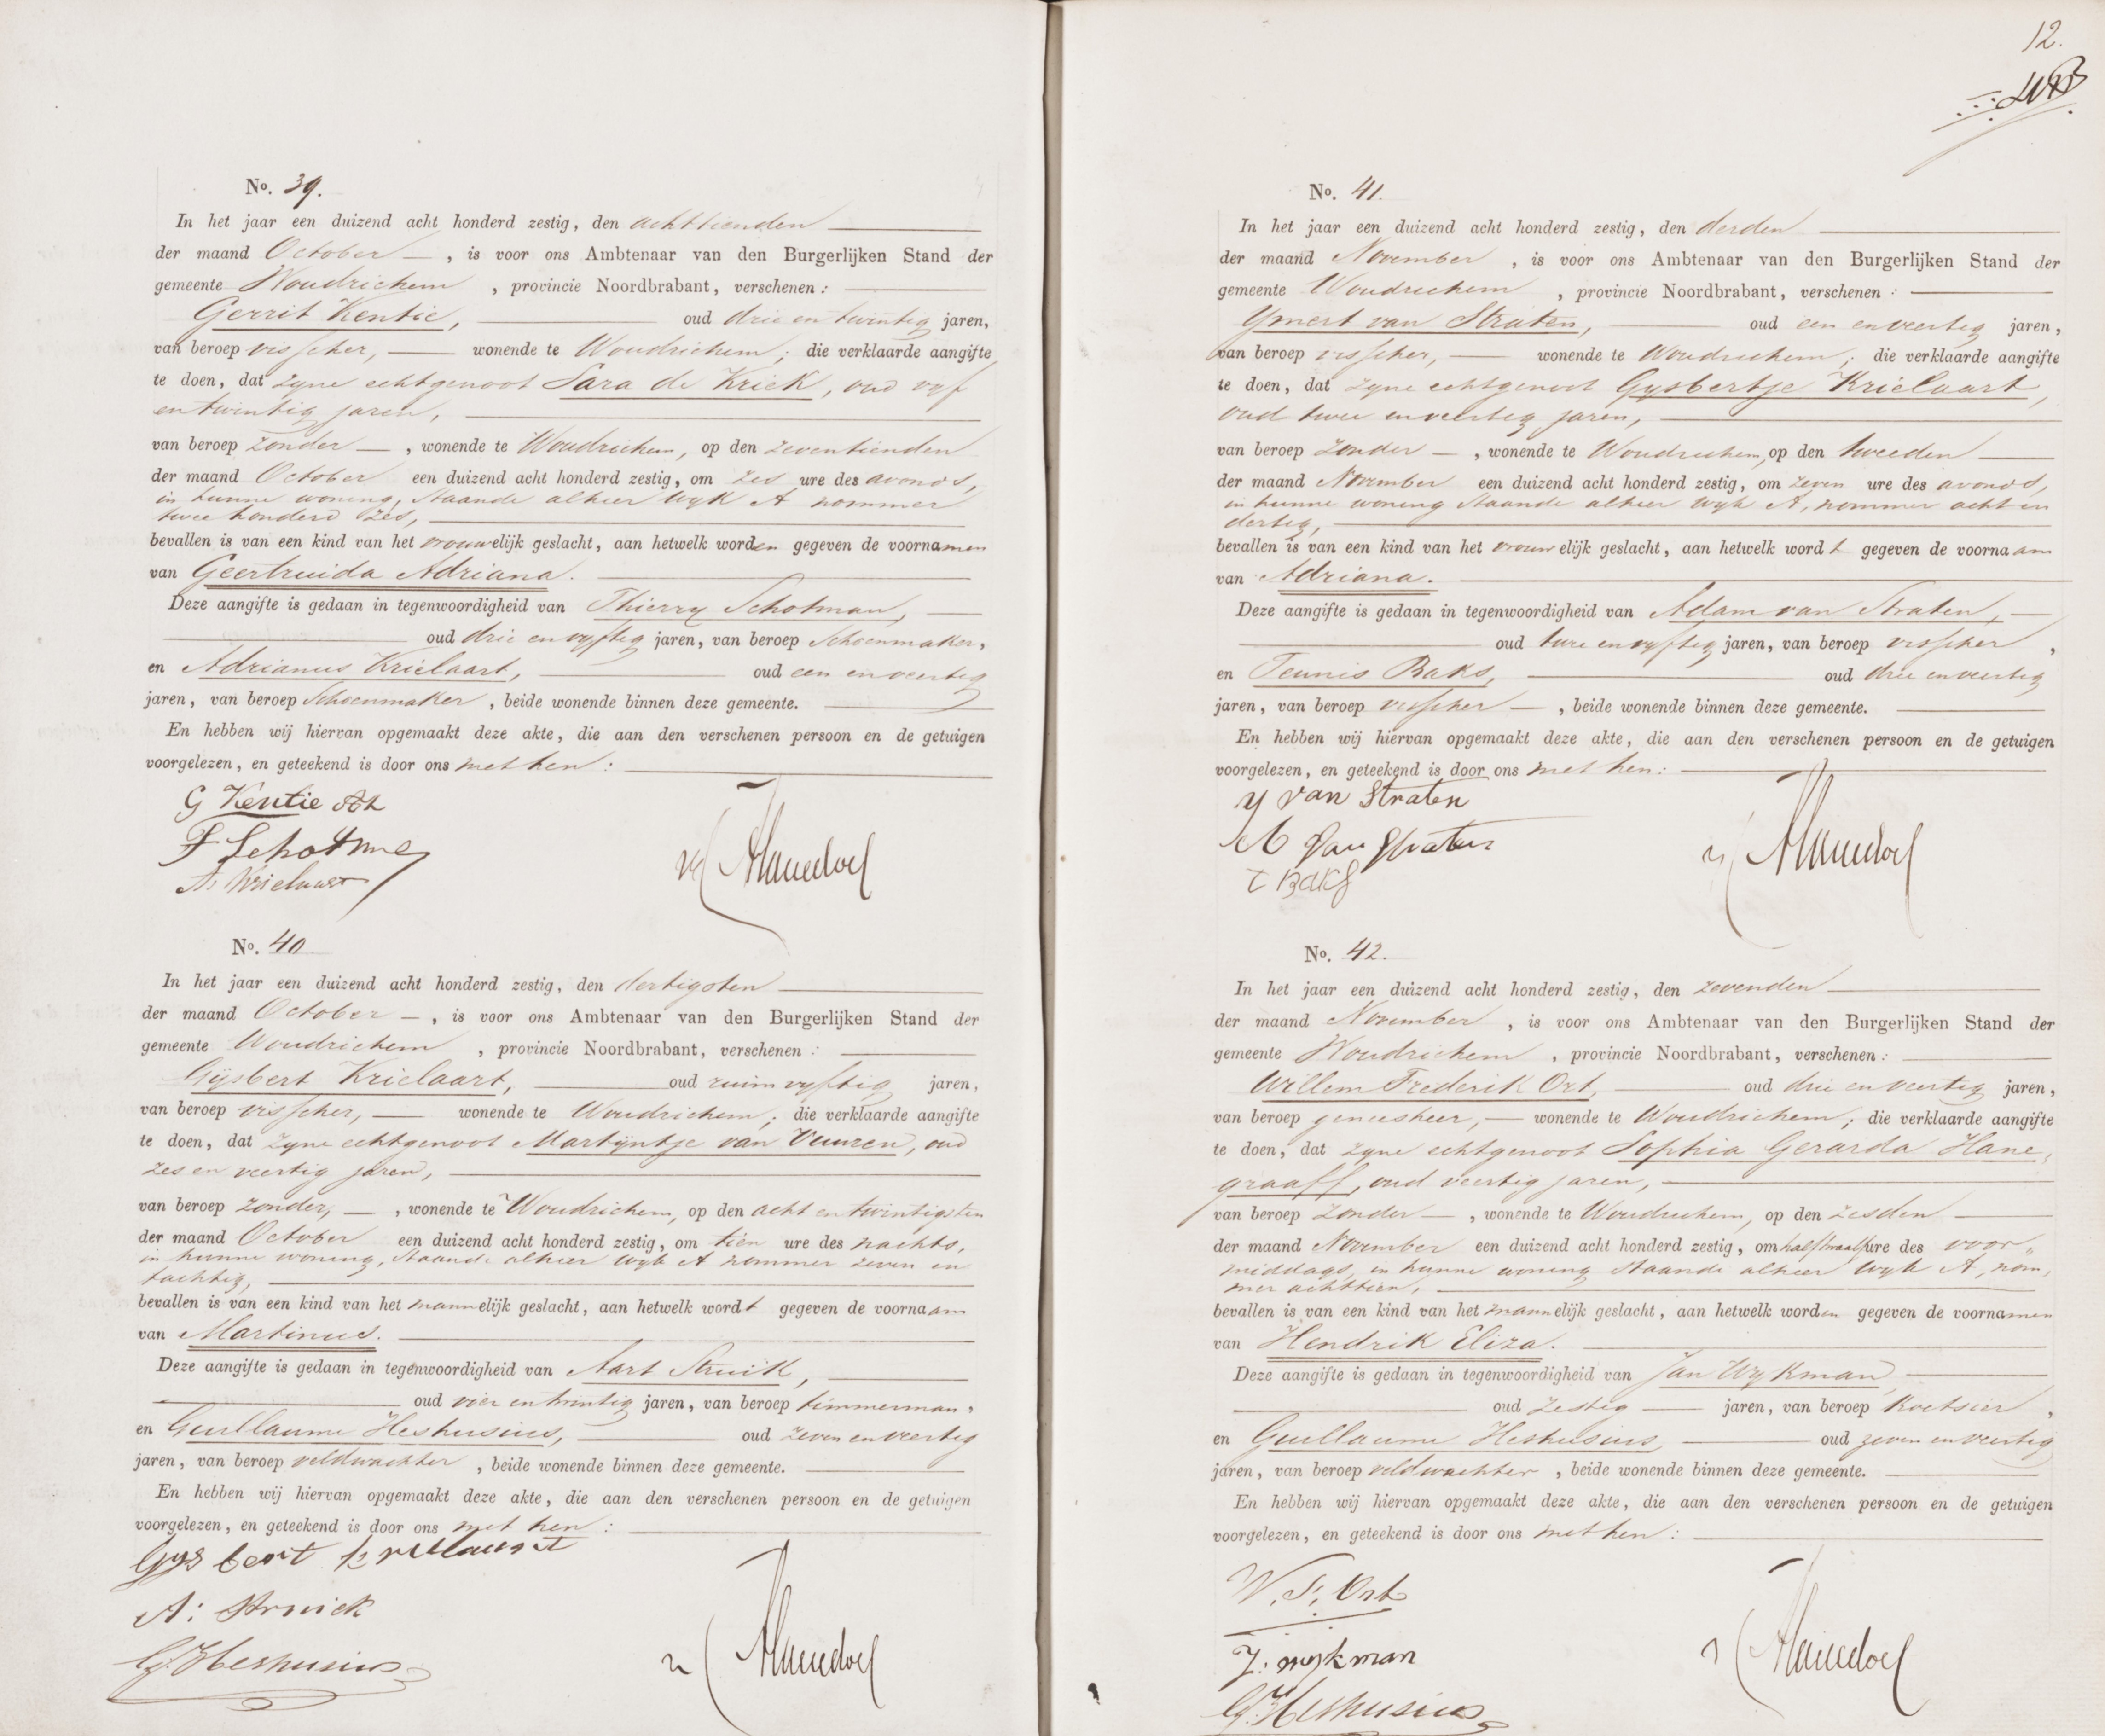 No. 39.
In het jaar een duizend acht honderd zestig, den achttienden
der maand October, is voor ons Ambtenaar van den Burgerlijken Stand der
gemeente Woudrichem, provincie Noordbrabant, verschenen:
Gerrit Kentie, oud drie en twintig jaren,
van beroep visscher, wonende te Woudrichem; die verklaarde aangifte
te doen, dat zyne echtgenoot Sara de Kriek, oud vyf
en twintig jaren,
van beroep zonder, wonende te Woudrichem, op den zeventienden
der maand October een duizend acht honderd zestig, om zes ure des avonds,
in hunne woning, staande alhier wyk A nommer
twee honderd zes,
bevallen is van een kind van het vrouwelijk geslacht, aan hetwelk worden gegeven de voornamen
van Geertruida Adriana.
Deze aangifte is gedaan in tegenwoordigheid van Thierry Schotman,
oud drie en vyftig jaren, van beroep Schoenmaker,
en Adrianus Krielaart, oud een en veertig
jaren, van beroep Schoenmaker, beide wonende binnen deze gemeente.
En hebben wij hiervan opgemaakt deze akte, die aan den verschenen persoon en de getuigen
voorgelezen, en geteekend is door ons met hen:
G Kentie
A. Krielaart
No. 40
In het jaar een duizend acht honderd zestig, den dertigsten
der maand October, is voor ons Ambtenaar van den Burgerlijken Stand der
gemeente Woudrichem, provincie Noordbrabant, verschenen:
Gijsbert Krielaart, oud ruim vyftig jaren,
van beroep visscher, wonende te Woudrichem; die verklaarde aangifte
te doen, dat zyne echtgenoot Martijntje van Vuuren, oud
zes en veertig jaren,
van beroep zonder, wonende te Woudrichem, op den acht en twintigsten
der maand October een duizend acht honderd zestig, om tien ure des nachts,
in hunne woning, staande alhier wyk A nommer zeven en
tachtig,
bevallen is van een kind van het mannelijk geslacht, aan hetwelk wordt gegeven de voornaam
van Martinus.
Deze aangifte is gedaan in tegenwoordigheid van Aart Struik,
oud vier en twintig jaren, van beroep timmerman,
en Guillaume Heshusius, oud zeven en veertig
jaren, van beroep veldwachter, beide wonende binnen deze gemeente.
En hebben wij hiervan opgemaakt deze akte, die aan den verschenen persoon en de getuigen
voorgelezen, en geteekend is door ons met hen:
Gys bert krielaart
A: Struick
G. Heshusius
12.
No. 41.
In het jaar een duizend acht honderd zestig, den derden
der maand November, is voor ons Ambtenaar van den Burgerlijken Stand der
gemeente Woudrichem, provincie Noordbrabant, verschenen:
Ymert van Straten, oud een en veertig jaren,
van beroep visscher, wonende te Woudrichem; die verklaarde aangifte
te doen, dat zyne echtgenoot Gysbertje Krielaart,
oud twee en veertig jaren,
van beroep zonder, wonende te Woudrichem, op den tweeden
der maand November een duizend acht honderd zestig, om zeven ure des avonds,
in hunne woning staande alhier wyk A, nommer acht en
dertig,
bevallen is van een kind van het vrouwelijk geslacht, aan hetwelk wordt gegeven de voornaam
van Adriana.
Deze aangifte is gedaan in tegenwoordigheid van Adam van Straten,
oud twee en vyftig jaren, van beroep visscher,
en Teunis Baks, oud drie en veertig
jaren, van beroep visscher, beide wonende binnen deze gemeente.
En hebben wij hiervan opgemaakt deze akte, die aan den verschenen persoon en de getuigen
voorgelezen, en geteekend is door ons met hen:
Y van Straten
A van Straten
T Baks
No. 42.
In het jaar een duizend acht honderd zestig, den zevenden
der maand November, is voor ons Ambtenaar van den Burgerlijken Stand der
gemeente Woudrichem, provincie Noordbrabant, verschenen:
Willem Frederik Ort, oud drie en veertig jaren,
van beroep geneesheer, wonende te Woudrichem; die verklaarde aangifte
te doen, dat zyne echtgenoot Sophia Gerarda Hane,
graaff, oud veertig jaren,
van beroep zonder, wonende te Woudrichem, op den zesden
der maand November een duizend acht honderd zestig, om half twaalf ure des voor„
middags, in hunne woning staande alhier wyk A, nom,
mer achttien,
bevallen is van een kind van het mannelijk geslacht, aan hetwelk worden gegeven de voornamen
van Hendrik Eliza.
Deze aangifte is gedaan in tegenwoordigheid van Jan Wykman,
oud zestig jaren, van beroep Koetsier,
en Guillaume Heshusius, oud zeven en veertig
jaren, van beroep veldwachter, beide wonende binnen deze gemeente.
En hebben wij hiervan opgemaakt deze akte, die aan den verschenen persoon en de getuigen
voorgelezen, en geteekend is door ons met hen:
W. F. Ort
J: wykman
G. Heshusius